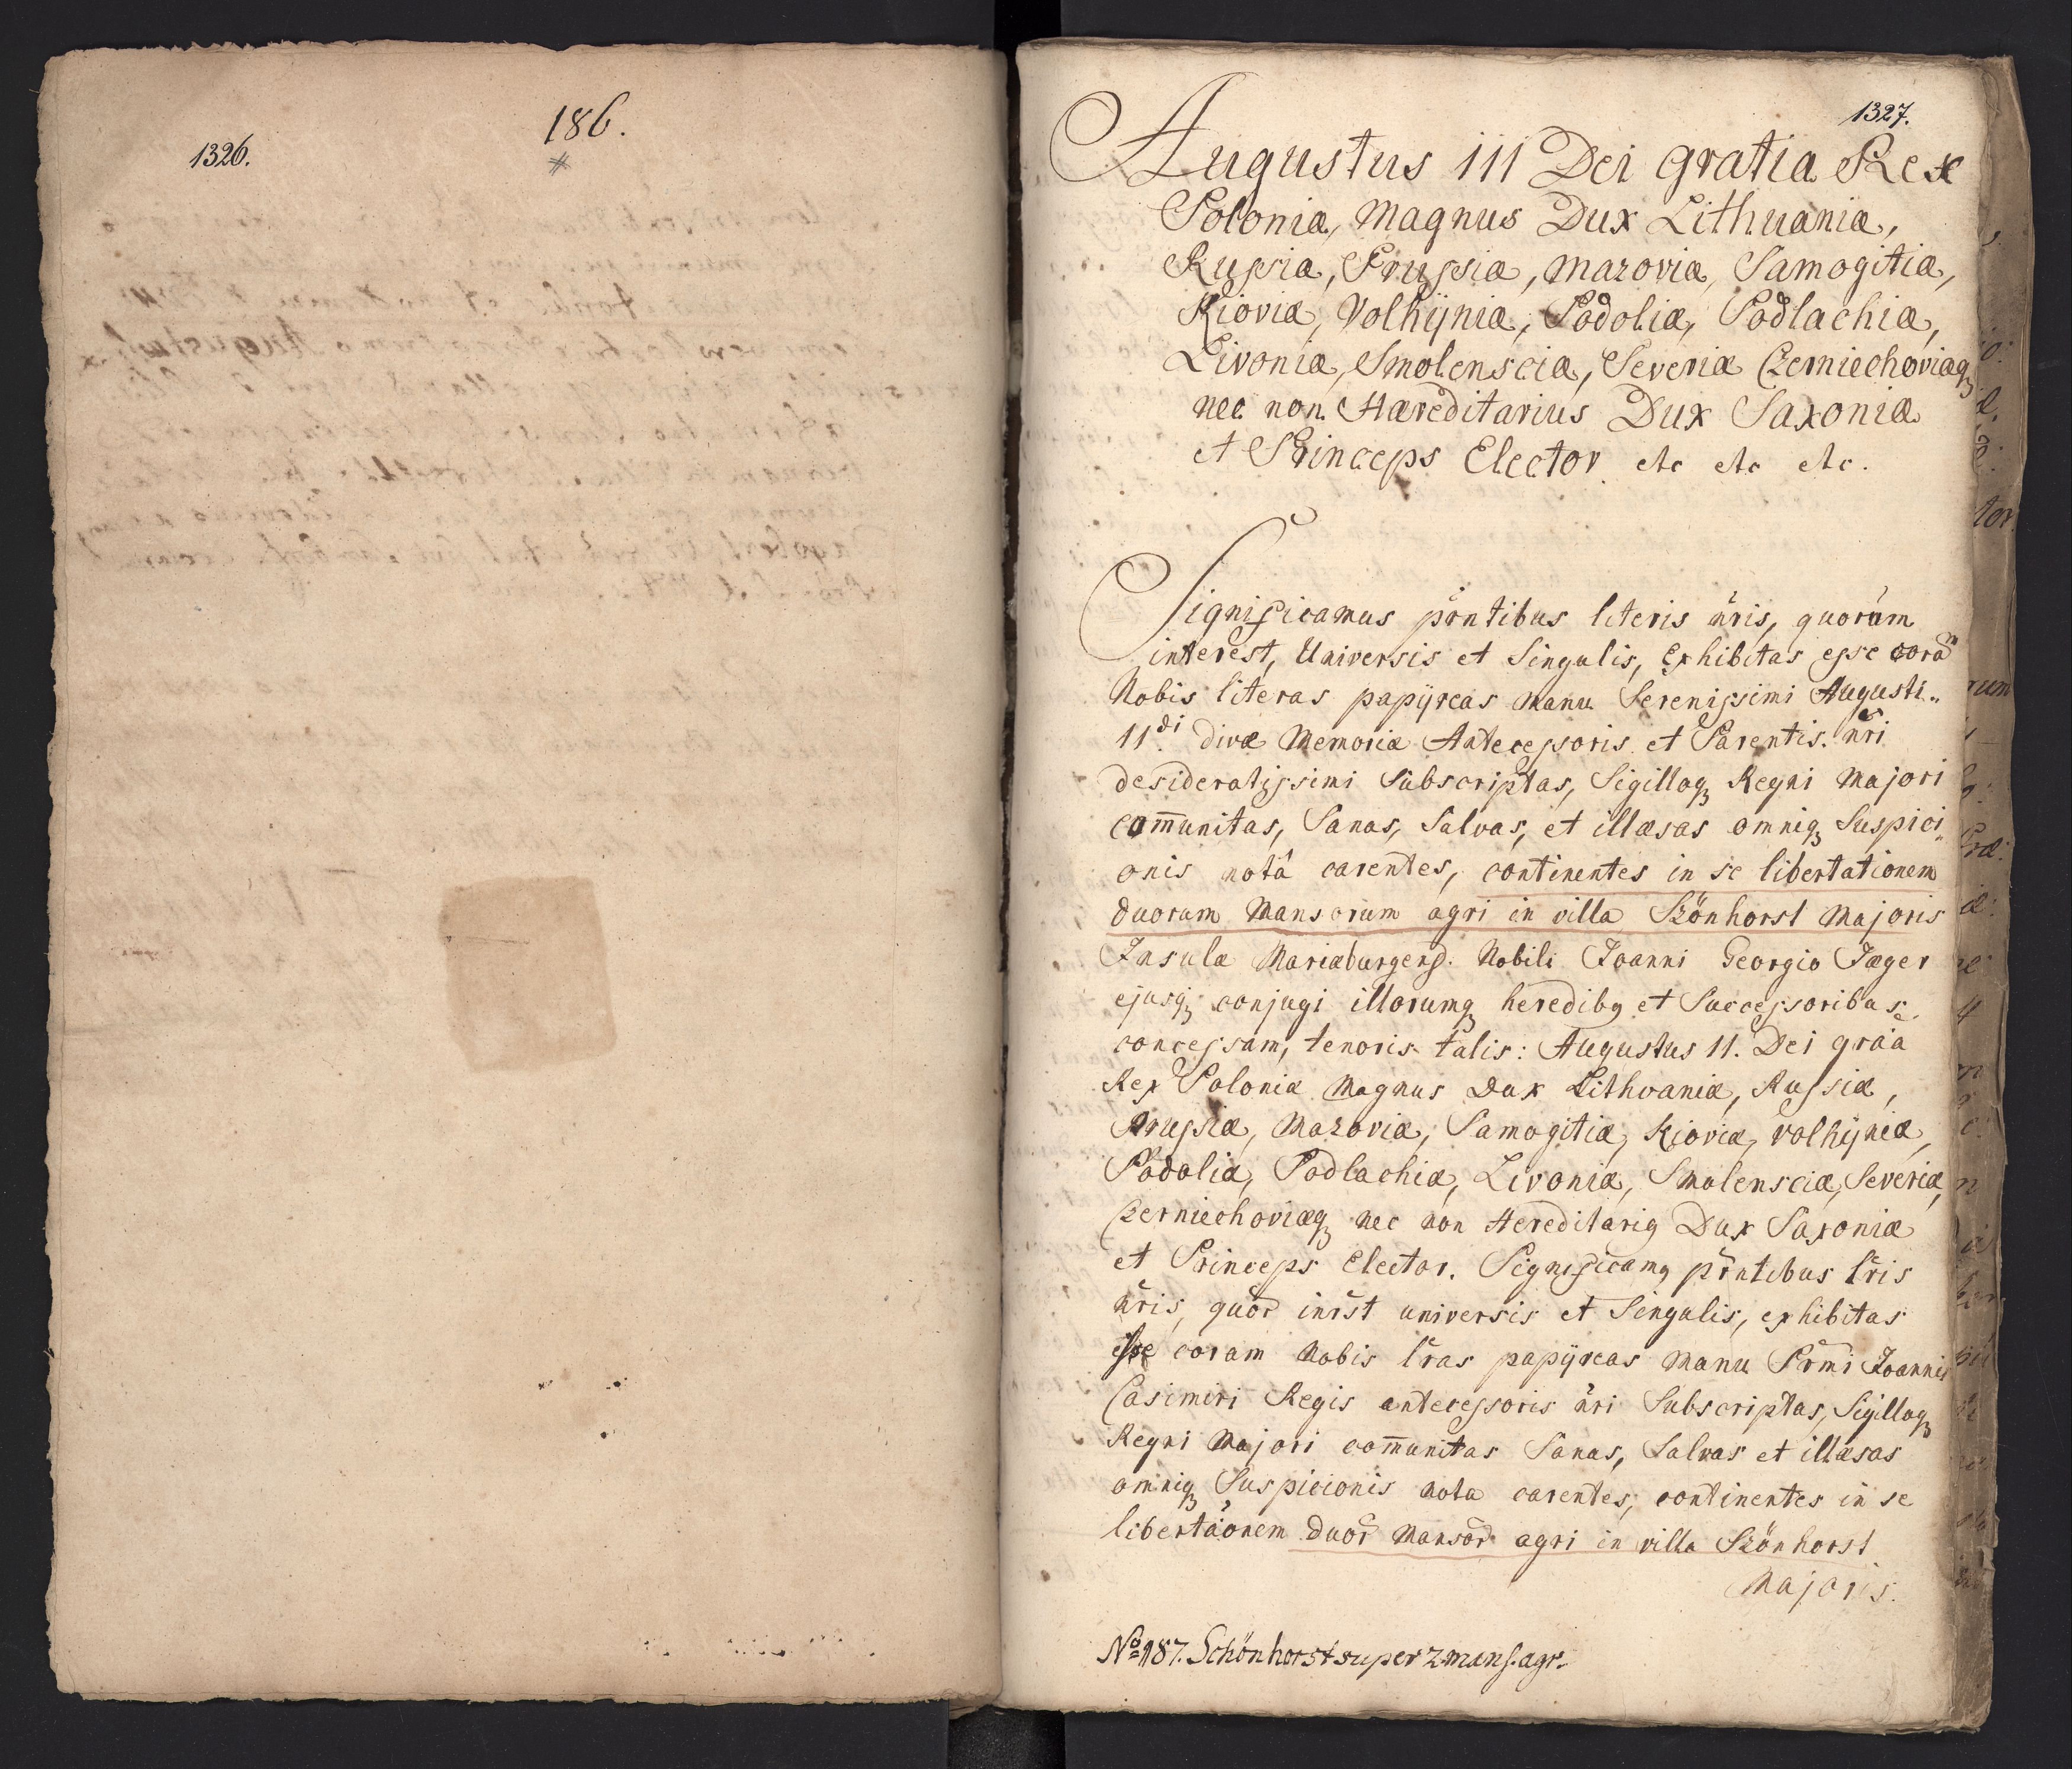 1326.
186.
#
1327.
Augustus III Dei gratia Rex
Poloniæ, Magnus Dux Lithuaniæ,
Russiæ, Prussiæ, Mazoviæ, Samogitiæ,
Kioviæ, Volhÿniæ, Podoliæ, Podlachiæ,
Livoniæ, Smolensciæ, Severiæ Czerniechoviæq3
nec non Hæreditarius Dux Saxoniæ
et Princeps Elector etc etc etc.
Significamus pr̃ntibus literis nr̃is, quorum
interest, Universis et Singulis, Exhibitas esse coram
Nobis literas papÿreas manu Serenissimi Augusti„
II.di divæ Memoriæ Antecessoris et Parentis nr̃i
desideratissimi Subscriptas, Sigilloq3 Regni Majori
com̃unitas, Sanas, Salvas, et illæsas omniq3 Suspici„
onis notâ carentes, continentes in se libertationem
duorum Mansorum agri in villa Szönhorst Majoris
Insulæ Mariæburgens. Nobili Joanni Georgio Jæger
ejusq3 conjugi illorumq3 heredib9 et Successoribus
concessam, tenoris talis: Augustus II. Dei gr̃a
Rex Poloniæ Magnus Dux Lithvaniæ, Russiæ,
Prussiæ, Mazoviæ, Samogitiæ, Kjoviæ, Volhÿniæ,
Podoliæ, Podlachiæ, Livoniæ, Smolensciæ, Severiæ,
Czerniechoviæq3 nec non Hereditari9 Dux Saxoniæ
et Princeps Elector. Significam9 pr̃ntibus lr̃is
nr̃is, quor̃ inr̃st universis et Singulis, exhibitas
esse coram Nobis lr̃as papÿreas manu Sr̃mi Joannis
Casimiri Regis antecessoris nr̃i Subscriptas, Sigilloq3
Regni Majori com̃unitas Sanas, Salvas et illæsas
omniq3 Suspicionis nota carentes, continentes in se
libertãonem duor̃ Mansor̃ agri in villa Szönhorst
Majoris.
No 187. Schönhorst super 2 mans. agr.